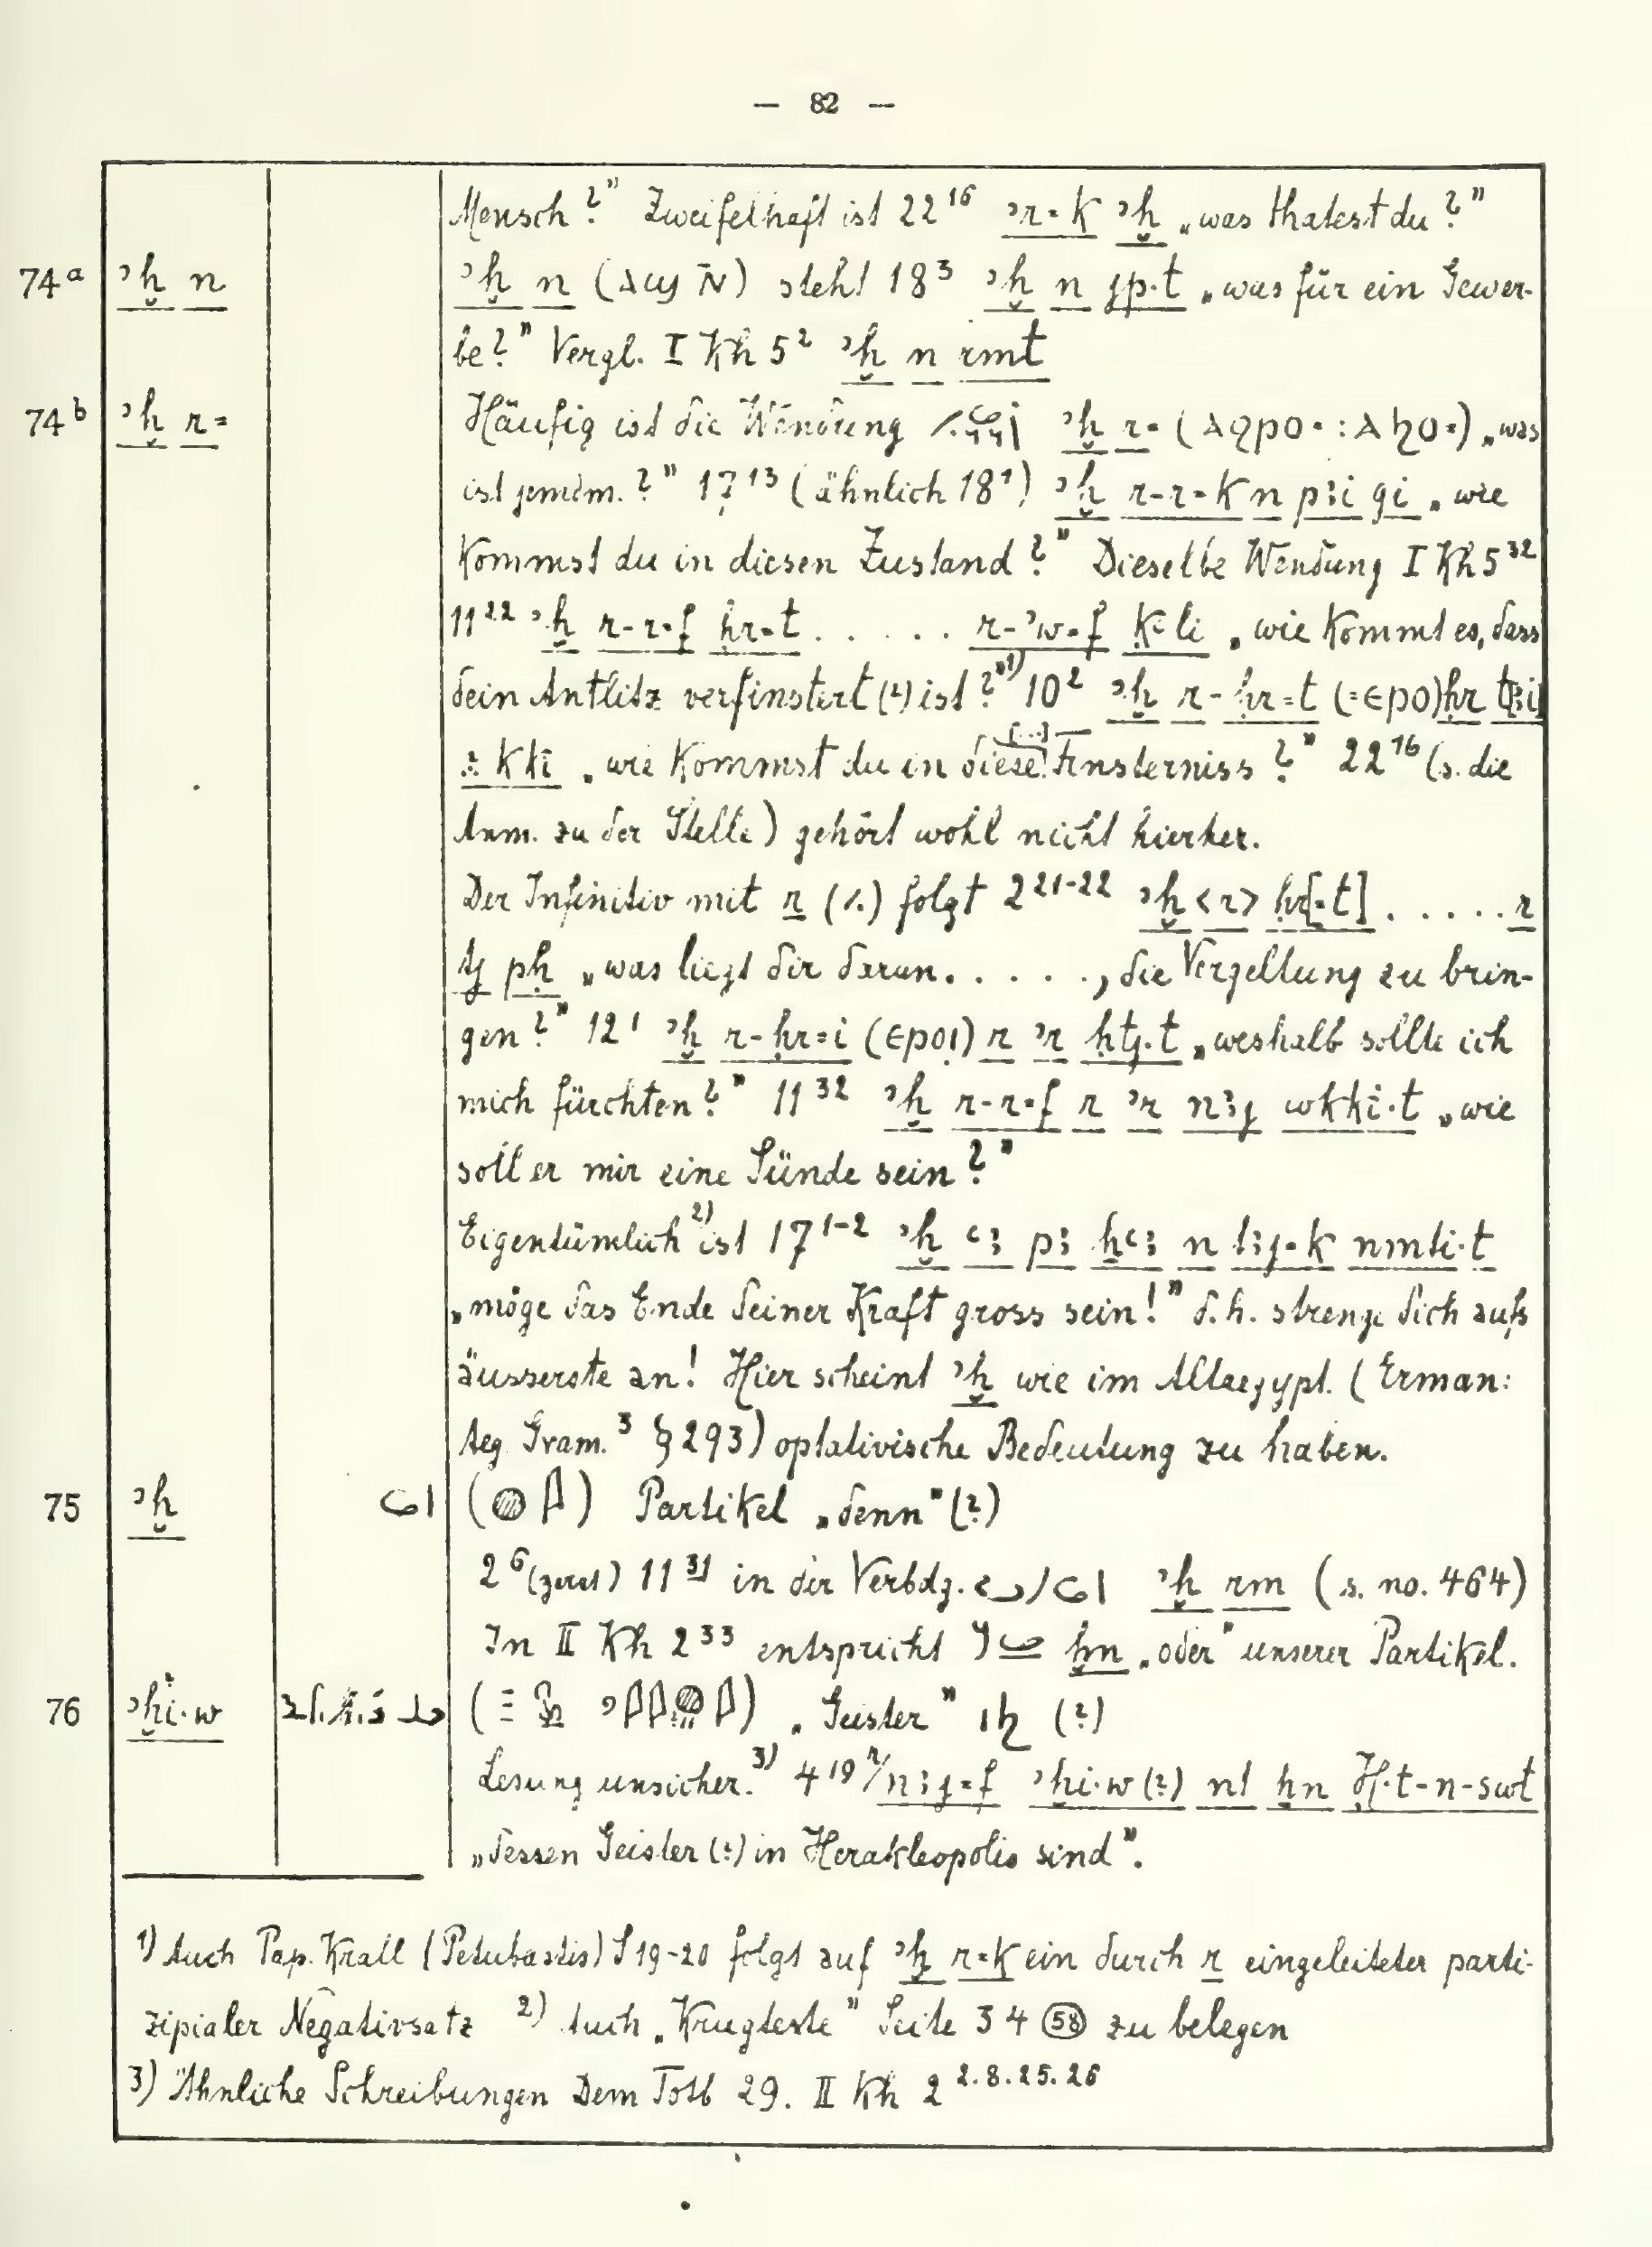 — 82 —
Mensch?" Zweifelhaft ist 22¹⁶ ꜣr=k ꜣḫ „was thatest du?"
74ᵃ ꜣḫ n ꜣḫ n (ⲁϣ ⲛ̄) steht 18³ ꜣḫ n jp.t „was für ein Gewer-
be?" Vergl. I Kh 5² ꜣḫ n rmt
74ᵇ ꜣḫ r= Häufig ist die Wendung ꜣḫ r= (ⲁϩⲣⲟ⸗ : ⲁϧⲟ⸗) „was
ist jemdm.?" 17¹³ (ähnlich 18¹) ꜣḫ r-r=k n pꜣi gi „wie
kommst du in diesen Zustand?" Dieselbe Wendung I Kh 5³²
11²² ꜣḫ r-r=f ḥr=t . . . . . r-ꜣw=f „wie kommt es, dass
dein Antlitz verfinstert (?) ist?"¹⁾ 10² ꜣḫ r-ḥr=t (=ⲉⲣⲟ) ḥr
kki „wie kommst du in diese Finsterniss?" 22¹⁶ (s. die
Anm. zu der Stelle) gehört wohl nicht hierher.
Der Infinitiv mit r (/.) folgt 2²¹⁻²² ꜣḫ <r> ḥr[=t] . . . . . r
tj pḥ „was liegt dir daran. . . . ., die Vergeltung zu brin-
gen?" 12¹ ꜣḫ r-ḥr=i (ⲉⲣⲟⲓ) r ꜣr ḥtj.t „weshalb sollte ich
mich fürchten?" 11³² ꜣḫ r-r=f r ꜣr nꜣj wkki.t „wie
soll er mir eine Sünde sein?"
Eigentümlich²⁾ ist 17¹⁻² ꜣḫ ꜥꜣ pꜣ ḥꜥꜣ n tꜣj=k nmti.t
„möge das Ende deiner Kraft gross sein!" d.h. strenge dich aufs
äusserste an! Hier scheint ꜣḫ wie im Altaegypt. (Erman:
Aeg. Gram.³ § 293) optativische Bedeutung zu haben.
75 ꜣḫ (𓐍𓇋) Partikel „denn" (?)
2⁶ (zerst) 11³¹ in der Verbdg. ꜣḫ rm (s. no. 464)
In II Kh 2³³ entspricht ḫn „oder" unserer Partikel.
76 ꜣḫi.w „Geister" ⲓϧ (?)
Lesung unsicher.³⁾ 4¹⁹ nꜣj=f ꜣḫi.w (?) nt ḫn Ḥ.t-n-swt
„dessen Geister (?) in Herakleopolis sind".
1) Auch Pap. Krall (Petubastis) S 19-20 folgt auf ꜣḫ r=k ein durch r eingeleiteter parti-
zipialer Negativsatz 2) Auch „Krugtexte" Seite 34 (58) zu belegen
3) Ähnliche Schreibungen Dem Totb 29. II Kh 2 ²·⁸·²⁵·²⁶